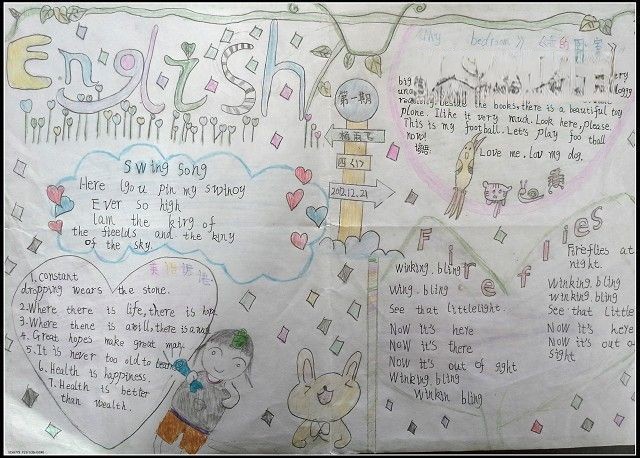 English
第一期
四(1)
2012.12.21
《My bedroom》
big
beside the books, there is a beautiful toy
plane. I like it very much. Look here, please.
This is my football. Let's play football
now!
Love me. Lov my dog.
Swing Song
Here I go up pin my swing
Ever so high
I am the king of
the fields and the king
of the sky.
英语谚语
1. constant
dropping wears the stone.
2. Where there is life, there is hope.
3. Where there is a will, there is a way
4. Great hopes make great man.
5. It is never too old to learn
6. Health is happiness.
7. Health is better
than wealth.
Fireflies
Winking. bling
Wing. bling
See that little light.
Now it's here
Now it's there
Now it's out of sight
Winking bling
Winkin bling
Fireflies at
night.
Winking. bling
winking. bling
See that little
Now it's here
Now it's out a
sight